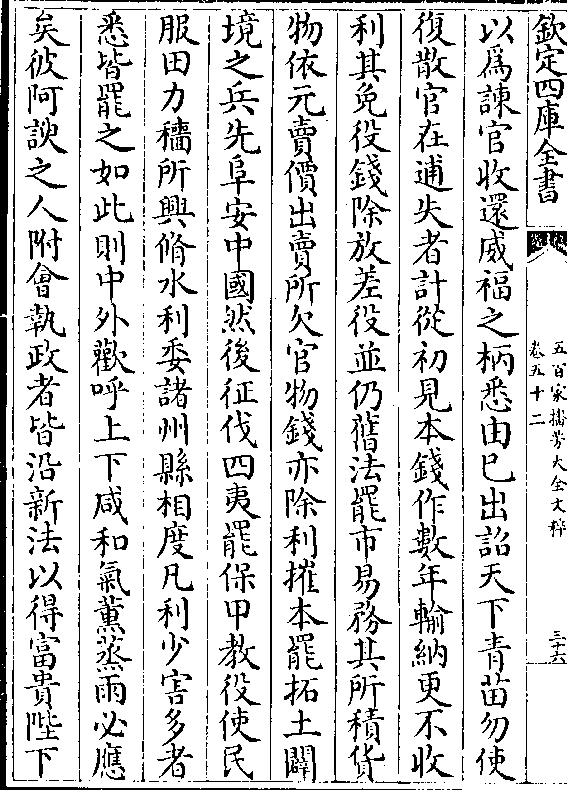 欽定四庫全書
五百家播芳大全文粹
卷五十二
三十六
以爲諫官收還威福之柄悉由己出詔天下青苗勿使
復散官在逋失者計從初見本錢作數年輸納更不收
利其免役錢除放差役並仍舊法罷市易務其所積貨
物依元賣價出賣所欠官物錢亦除利摧本罷拓土闢
境之兵先阜安中國然後征伐四夷罷保甲教役使民
服田力穡所興脩水利委諸州縣相度凡利少害多者
悉皆罷之如此則中外歡呼上下咸和氣薰蒸雨必應
矣彼阿諛之人附會執政者皆沿新法以得富貴陛下